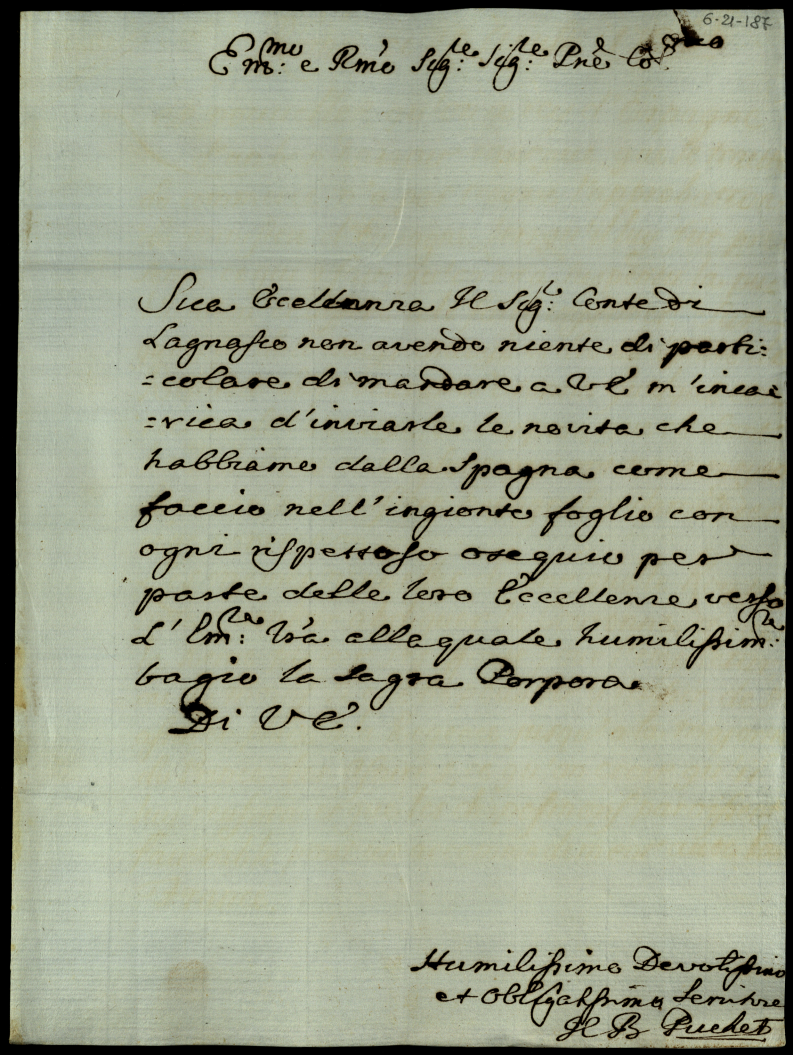 6-21-187
Em:mo e Rmo Sig:re Sig:re Pnē Col:mo
Sua Eccellenza Il Sig:r Conte di
Lagnasco non avendo niente di parti:
=colare di mandare a VE m'incar
=rica d'inviarle le novita che
habbiamo dalla Spagna come
faccio nell'ingionto foglio con
ogni rispettoso osequio per
parte delle loro Eccellenze verso
L'Em:za Vrā alla quale humilissim:te
bagio la Sagra Porpora
Di VE.
Humilissimo Devotissimo
et Obligatissimo Servitore
Il B Puchet